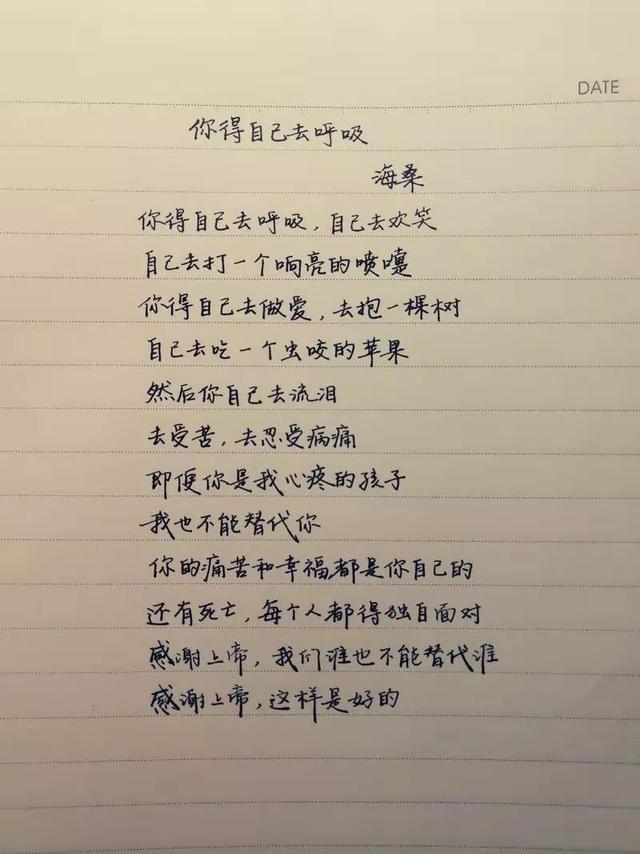 DATE
你得自己去呼吸
海桑
你得自己去呼吸，自己去欢笑
自己去打一个响亮的喷嚏
你得自己去做爱，去抱一棵树
自己去吃一个虫咬的苹果
然后你自己去流泪
去受苦，去忍受病痛
即便你是我心疼的孩子
我也不能替代你
你的痛苦和幸福，都是你自己的
还有死亡，每个人都得独自面对
感谢上帝，我们谁也不能替代谁
感谢上帝，这样是好的